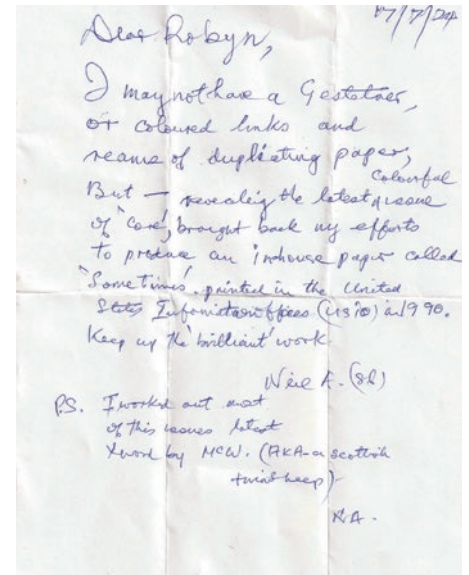 17/7/24
Dear Robyn,
I may not have a Gestetner,
or coloured Inks and
reams of duplicating paper,
colourful
But — revealing the latest issue
of 'Core', brought back my efforts
to produce an inhouse paper called
'Sometimes', printed in the United
States Information offices (USIO) in 1990.
Keep up the 'brilliant' work.
Neil A. (SR)
P.S. I worked out most
of this issues latest
Xword by McW. (AKA- a scottish
NA.